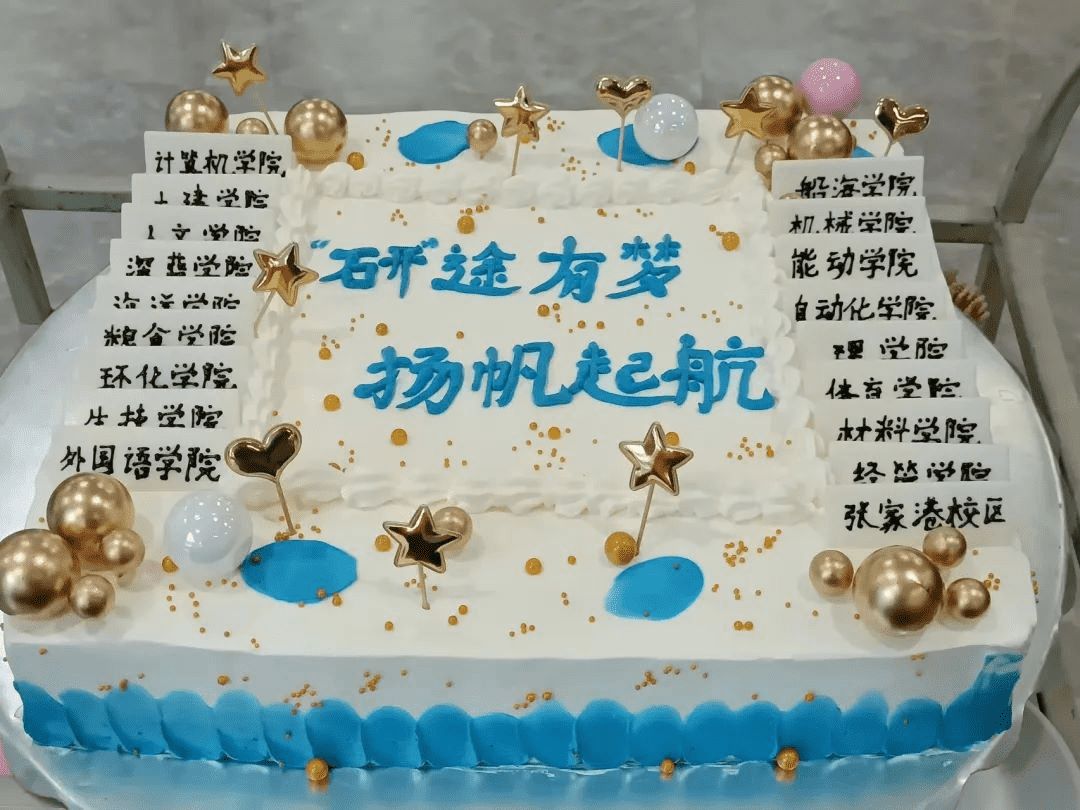 “研”途有梦
扬帆起航
计算机学院
土建学院
人文学院
深蓝学院
海洋学院
粮食学院
环化学院
生技学院
外国语学院
船海学院
机械学院
能动学院
自动化学院
理学院
体育学院
材料学院
经管学院
张家港校区